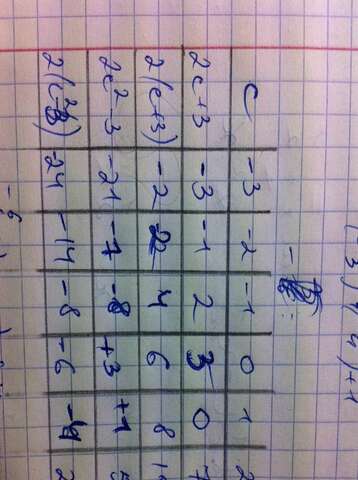 (3) 4) +1
c -3 -2 -1 0 1 2
2c+3 -3 -1 2 3 0 7
2(c+3) -2 2 4 6 8
2c²-3 -21 -7 -8 +3 +1 5
2(c²-3) -24 -14 -8 -6 -4 2
-6